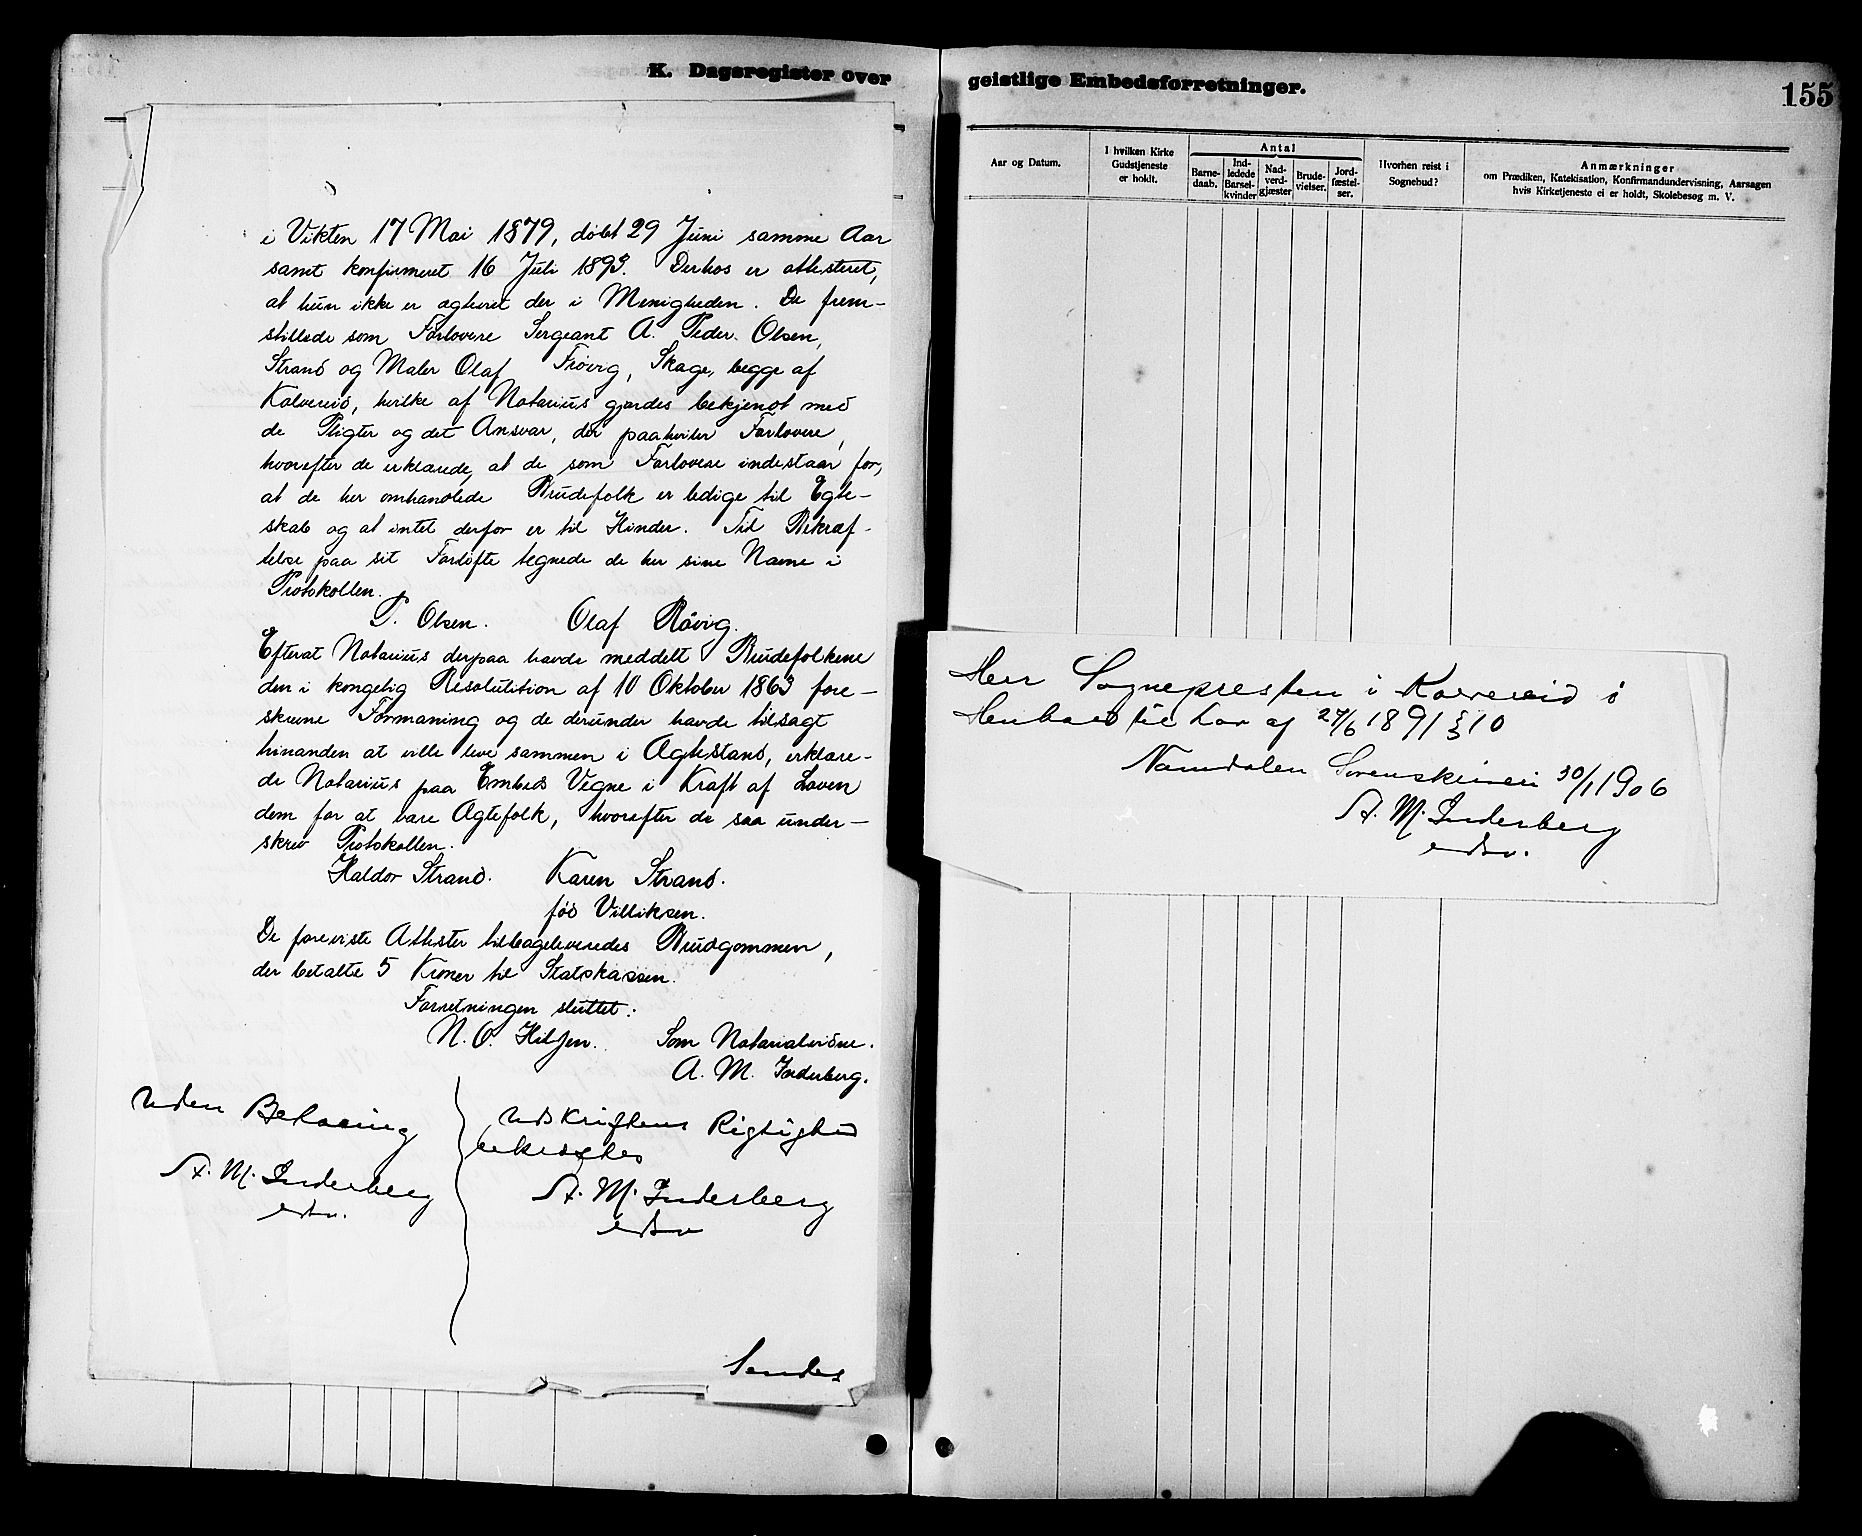 K. Dagsregister over
i Vikten 17 Mai 1879, döbt 29 Juni samme Aar
samt konfirmeret 16 Juli 1893. Derhos er attesteret,
at hun ikke er ægteviet der i Menigheden. De frem-
stillede som Forlovere Sergeant A. Peder Olsen,
Strand og Maler Olaf Frövig, Skage, begge af
Kolvereid, hvilke af Notarius gjordes bekjendt med
de Pligter og det Ansvar, der paahviler Forlovere,
hvorefter de erklærede, at de som Forlovere indestaar for,
at de her omhandlede Brudefolk er ledige til Egte-
skab og at intet derfor er til Hinder. Til Bekræf-
telse paa sit Forløfte tegnede de her sine Navne i
Protokollen.
P. Olsen. Olaf Rövig.
Efterat Notarius derpaa havde meddelt Brudefolkene
den i kongelig Resolutition af 10 Oktober 1863 fore-
skrevne Formaning og de derunder havde tilsagt
hinanden at ville leve sammen i Ægtestand, erklære-
de Notarius paa Embeds Vegne i Kraft af Loven
dem for at være Ægtefolk, hvorefter de saa under-
skrev Protokollen.
Haldor Strand. Karen Strand.
föd Villiksen.
De foreviste Attester tilbageleveredes Brudgommen,
der betalte 5 Kroner til Statskassen.
Forretningen sluttet.
N. O. Som Notarialvidne.
A. M. Inderberg.
Uden Betaling
A. M. Inderberg
edsv.
Udskriftens Rigtighed
bekræftes
A. M. Inderberg
edsv
Sendes
geistlige Embedsforretninger.
155
Aar og Datum.
I hvilken Kirke Gudstjeneste er holdt.
Antal
Barne-daab.
Ind-ledede Barsel-kvinder
Nad-verd-gjæster
Brude-vielser.
Jord-fæstel-ser.
Hvorhen reist i Sognebud?
Anmærkninger
om Prædiken, Katekisation, Konfirmandundervisning, Aarsagen
hvis Kirketjeneste ei er holdt, Skolebesøg m. V.
Herr Sognepresten i Kolvereid i
Henhold til Lov af 27/6 1891 § 10
Namdalen Sorenskriveri 30/1 1906
A. M. Inderberg
edsv.